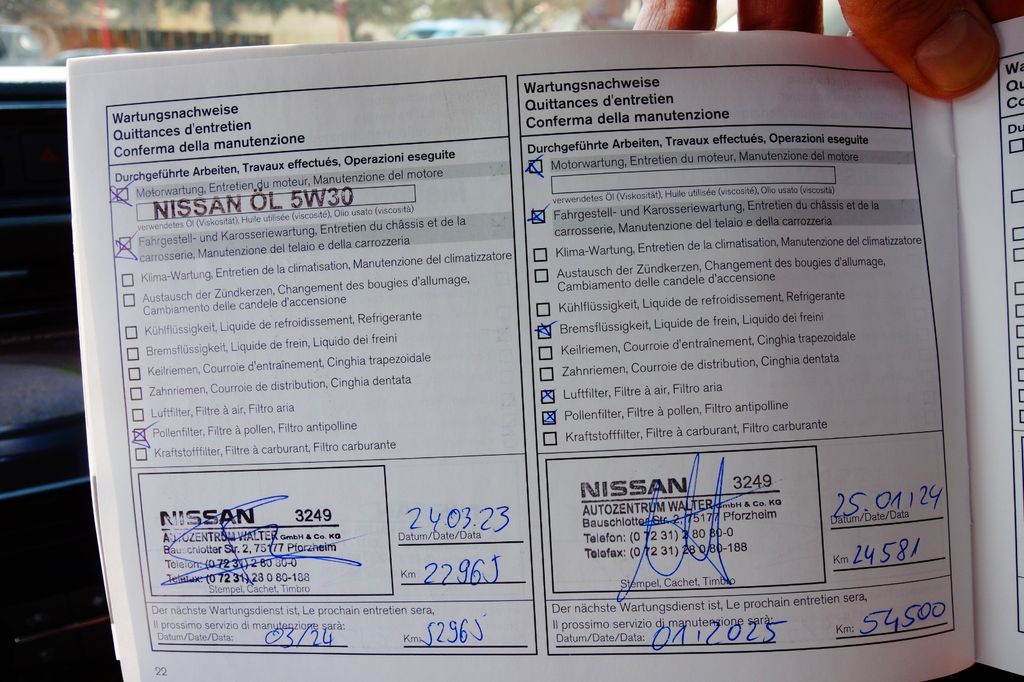 Wartungsnachweise
Quittances d'entretien
Conferma della manutenzione
Durchgeführte Arbeiten, Travaux effectués, Operazioni eseguite
Motorwartung, Entretien du moteur, Manutenzione del motore
NISSAN ÖL 5W30
verwendetes Öl (Viskosität), Huile utilisée (viscosité), Olio usato (viscosità)
Fahrgestell- und Karosseriewartung, Entretien du châssis et de la
carrosserie, Manutenzione del telaio e della carrozzeria
Klima-Wartung, Entretien de la climatisation, Manutenzione del climatizzatore
Austausch der Zündkerzen, Changement des bougies d'allumage,
Cambiamento delle candele d'accensione
Kühlflüssigkeit, Liquide de refroidissement, Refrigerante
Bremsflüssigkeit, Liquide de frein, Liquido dei freini
Keilriemen, Courroie d'entraînement, Cinghia trapezoidale
Zahnriemen, Courroie de distribution, Cinghia dentata
Luftfilter, Filtre à air, Filtro aria
Pollenfilter, Filtre à pollen, Filtro antipolline
Kraftstofffilter, Filtre à carburant, Filtro carburante
NISSAN 3249
AUTOZENTRUM WALTER GmbH & Co. KG
Bauschlotter Str. 2, 75177 Pforzheim
Telefon: (0 72 31) 2 80 80-0
Telefax: (0 72 31) 28 0 80-188
Stempel, Cachet, Timbro
24.03.23
Datum/Date/Data
Km 22965
Der nächste Wartungsdienst ist, Le prochain entretien sera,
Il prossimo servizio di manutenzione sarà:
Datum/Date/Data: 03/24 Km: 52965
22
Wartungsnachweise
Quittances d'entretien
Conferma della manutenzione
Durchgeführte Arbeiten, Travaux effectués, Operazioni eseguite
Motorwartung, Entretien du moteur, Manutenzione del motore
verwendetes Öl (Viskosität), Huile utilisée (viscosité), Olio usato (viscosità)
Fahrgestell- und Karosseriewartung, Entretien du châssis et de la
carrosserie, Manutenzione del telaio e della carrozzeria
Klima-Wartung, Entretien de la climatisation, Manutenzione del climatizzatore
Austausch der Zündkerzen, Changement des bougies d'allumage,
Cambiamento delle candele d'accensione
Kühlflüssigkeit, Liquide de refroidissement, Refrigerante
Bremsflüssigkeit, Liquide de frein, Liquido dei freini
Keilriemen, Courroie d'entraînement, Cinghia trapezoidale
Zahnriemen, Courroie de distribution, Cinghia dentata
Luftfilter, Filtre à air, Filtro aria
Pollenfilter, Filtre à pollen, Filtro antipolline
Kraftstofffilter, Filtre à carburant, Filtro carburante
NISSAN 3249
AUTOZENTRUM WALTER GmbH & Co. KG
Bauschlotter Str. 2, 75177 Pforzheim
Telefon: (0 72 31) 2 80 80-0
Telefax: (0 72 31) 28 0 80-188
Stempel, Cachet, Timbro
25.01.24
Datum/Date/Data
Km 24581
Der nächste Wartungsdienst ist, Le prochain entretien sera,
Il prossimo servizio di manutenzione sarà:
Datum/Date/Data: 01.2025 Km: 54500